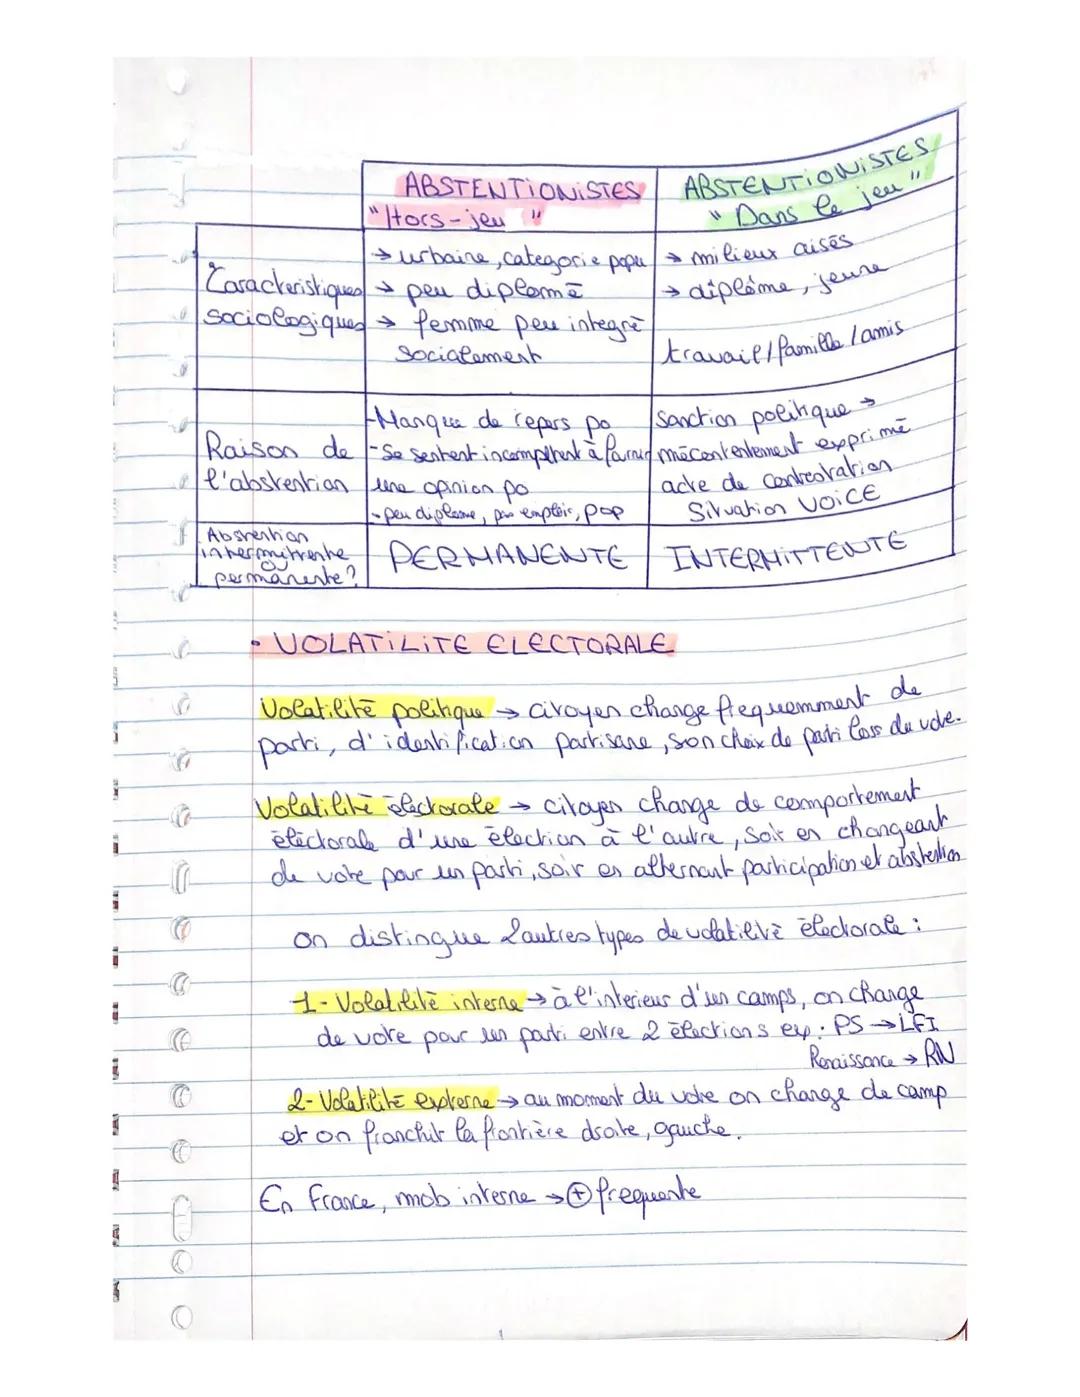 ABSTENTiONiSTES
"Hors-jeu"
ABSTENTiONiSTES
"Dans le jeu"
Caracteristiques
sociologiques
→ urbaine, categorie popu
→ peu diplomé
→ femme peu integré
socialement
→ milieux aisés
→ diplôme, jeune
travail/famille/amis
Raison de
l'abstention
-Manque de repers po
-Se sentent incompétent à fournir
une opinion po
-peu diplome, pas emplois, pop
Sanction politique →
mécontentement exprimé
acte de contestation
Situation VOiCE
Abstention
intermittente
ou
permanente?
PERMANENTE
INTERMiTTENTE
• VOLATiLiTE ELECTORALE
Volatilité politique → citoyen change frequemment de
parti, d'identification partisane, son choix de parti lors du vote.
Volatilité électorale → citoyen change de comportement
éléctorale d'une élection à l'autre, soit en changeant
de vote pour un parti, soit en alternant participation et abstention
on distingue 2 autres types de volatilité électorale :
1- Volatilité interne → à l'interieur d'un camps, on change
de vote pour un parti entre 2 élections ex: PS → LFI
Renaissance → RN
2- Volatilité externe → au moment du vote on change de camp
et on franchit la frontière droite, gauche.
En France, mob interne → ⊕ frequente